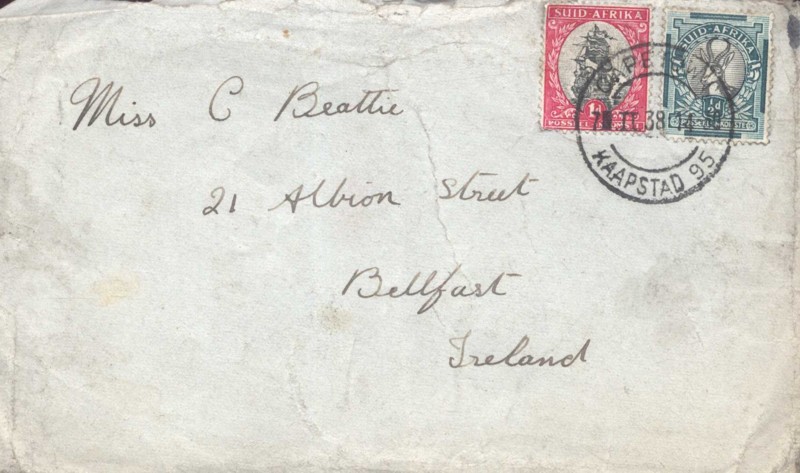 SUID-AFRIKA
SUID-AFRIKA
1D
½D
POSSEËL
38
KAAPSTAD 95
Miss C Beattie
21 Albion Street
Bellfast
Ireland